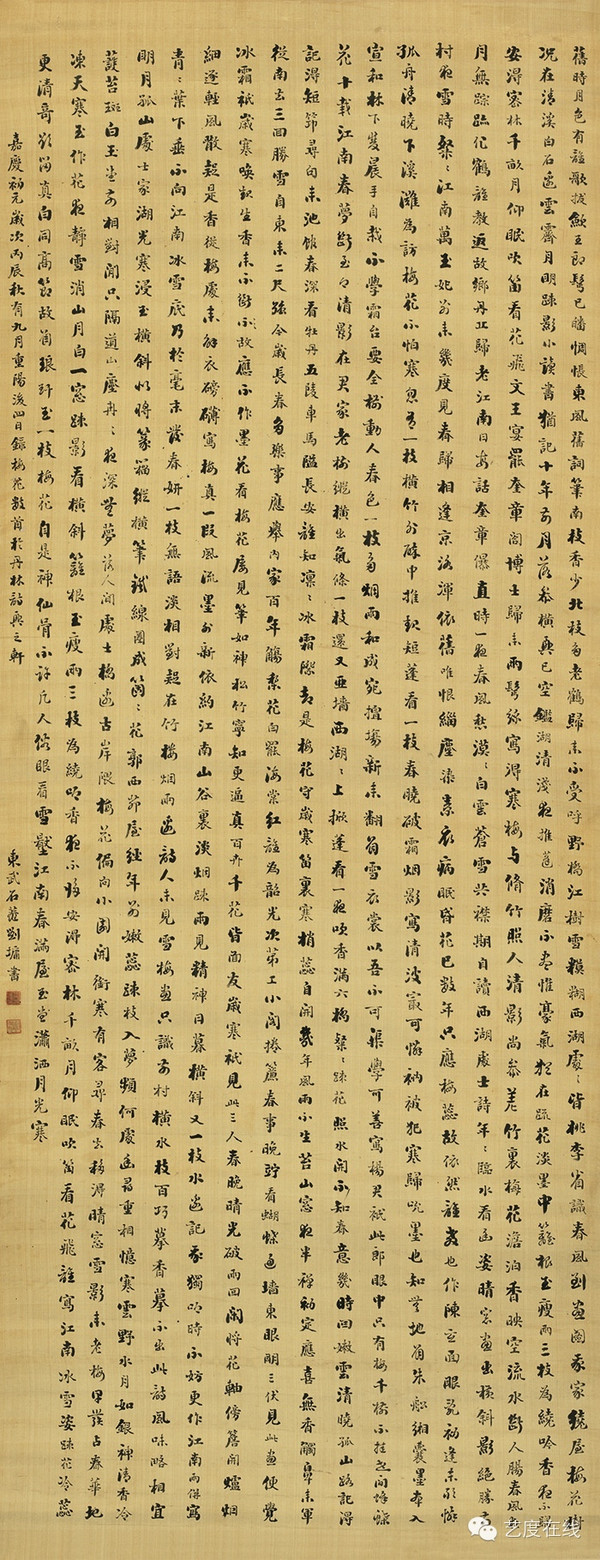 舊時月色有誰歌拔𩯭王郎鬢已皤惆悵東風舊詞筆南枝香少北枝多老鶴歸來不受呼野橋江樹雪模糊西湖處處皆桃李省識春風到畫圖我家繞屋梅花樹
況在清溪白石邊雲霽月明疎影小讀書猶記十年前月落參橫興已空鑑湖清淺夜推篷消磨不盡惟豪氣猶在疏花淡墨中籬根玉瘦兩三枝為繞吟香夜不歸
安得寒林千畝月仰眠吹笛看花飛文王宴罷奎章閣博士歸來兩鬢絲寫得寒梅與脩竹照人清影尚參差竹裏梅花澹泊香映空流水斷人腸春風夜
月無蹤跡化鶴誰教返故鄉丹丘歸老江南日每話奎章儤直時一夜春風愁漠漠白雲蒼雪共襟期自讀西湖處士詩年年臨水看幽姿晴窗畫出橫斜影絕勝前
村夜雪時粲粲江南萬玉妃別來幾度見春歸相逢京洛渾依舊唯恨緇塵染素衣病眠昏花已數年只應梅蕊故依然誰教也作陳玄面眼亂初逢未敢憐
孤舟清曉下溪灘為訪梅花不怕寒忽有一枝橫竹外醉中推起短蓬看一枝春曉破霜烟影寫清波最可憐衲被犯寒歸吮墨也知無地著朱鉛湘囊墨本入
宣和林下晨晨手自栽不學霜台要全樹動人春色一枝多烟雨和成宛擅場新來翻著雪衣裳以吾不可渠學可善寫楊君祇此郎眼中只有梅千樹不挂
花十載江南春夢斷玉人清影在君家老梅縱橫出氣條一枝還又亞墻西湖湖上撅蓬看一夜吹香滿六橋粲粲疎花照水開不知春意幾時回嫩雲清曉孤山路記得
記得短筇尋句來池館春深看牡丹五陵車馬隘長安誰知凜凜冰霜際自是梅花守歲寒
從南去三回勝雪自東來二尺強今歲長春多樂事
冰霜祇歲寒喚起生香來不斷故應不作墨花看梅花屢見筆如神松竹寧知更逼真百卉千花皆面友歲寒祇見此三人春晚晴光破雨回閑將花軸傍簷開爐烟
細逐輕風散疑是香從梅處來解衣磅礴寫梅真一段風流墨外新依約江南山谷裏淡烟疎雨見精神日暮橫斜又一枝水邊記我獨吟時不妨更作江南雨併寫
青青葉下垂不向江南冰雪底乃於毫末發春妍一枝無語淡相對疑在竹樓烟雨邊詩人未見雪梅畫只識前村橫水枝百巧摹香摹不出此詩風味略相宜
明月孤山處士家湖光寒浸玉橫斜似將篆籀縱橫筆鐵線圈成箇箇花郭西茆屋經年別嫩蕊疎枝入夢頻何處幽尋重相憶寒雲野水月如銀神清香冷
護苔斑白玉堂前相對閒只隔道山塵冉冉夜深無夢落人間處士橋邊古岸隈梅花偏向小園開衝寒有客尋春去移得晴窗雪影來老梅單護占春華地
凍天寒玉作花夜靜雪消山月白一窓疎影看橫斜籬根玉瘦兩三枝為繞吟香夜不歸安得寒林千畝月仰眠吹笛看花飛誰寫江南冰雪姿疎花冷蕊
更清奇影留真白同高節故著琅玕玉一枝梅花自是神仙骨不許凡人俗眼看雪壓江南春滿屋玉堂瀟洒月光寒
嘉慶初元歲次丙辰秋有九月重陽後四日錄梅花數首於丹林詩興之軒
東武石菴劉墉書
艺度在线